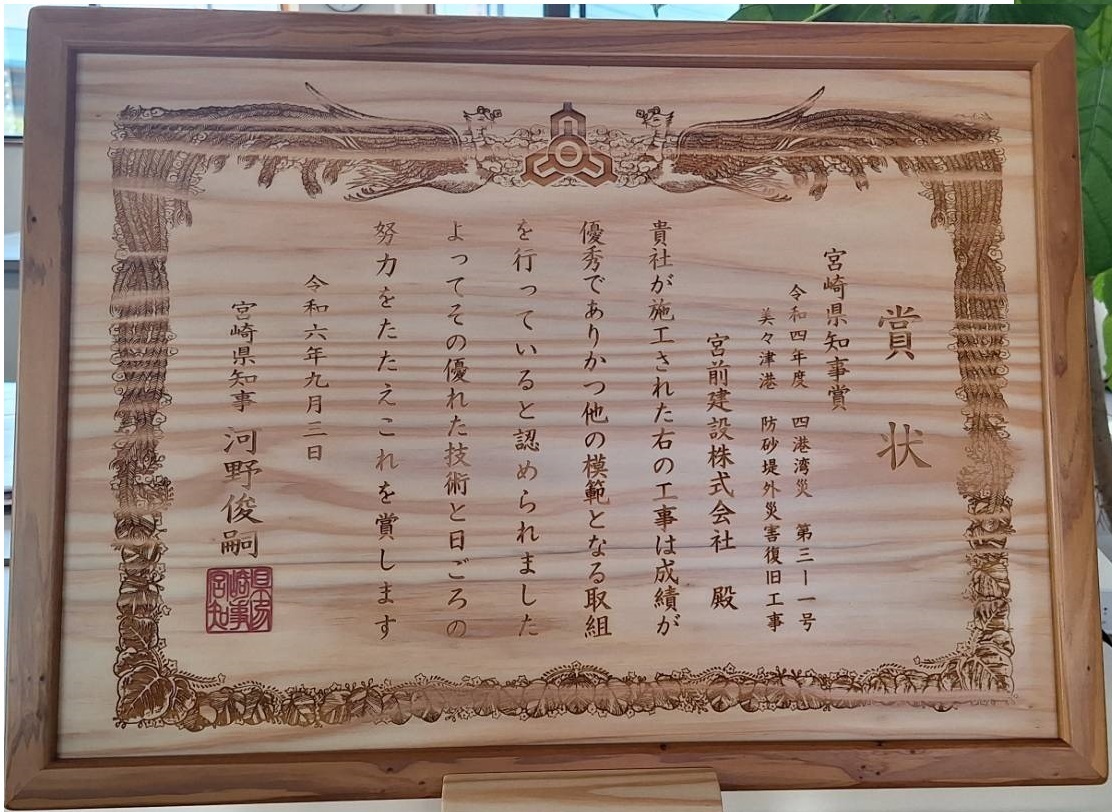 賞状
宮崎県知事賞
令和四年度 四港湾災 第三ー一号
美々津港 防砂堤外災害復旧工事
宮前建設株式会社 殿
貴社が施工された右の工事は成績が
優秀でありかつ他の模範となる取組
を行っていると認められました
よってその優れた技術と日ごろの
努力をたたえこれを賞します
令和六年九月三日
宮崎県知事 河野俊嗣